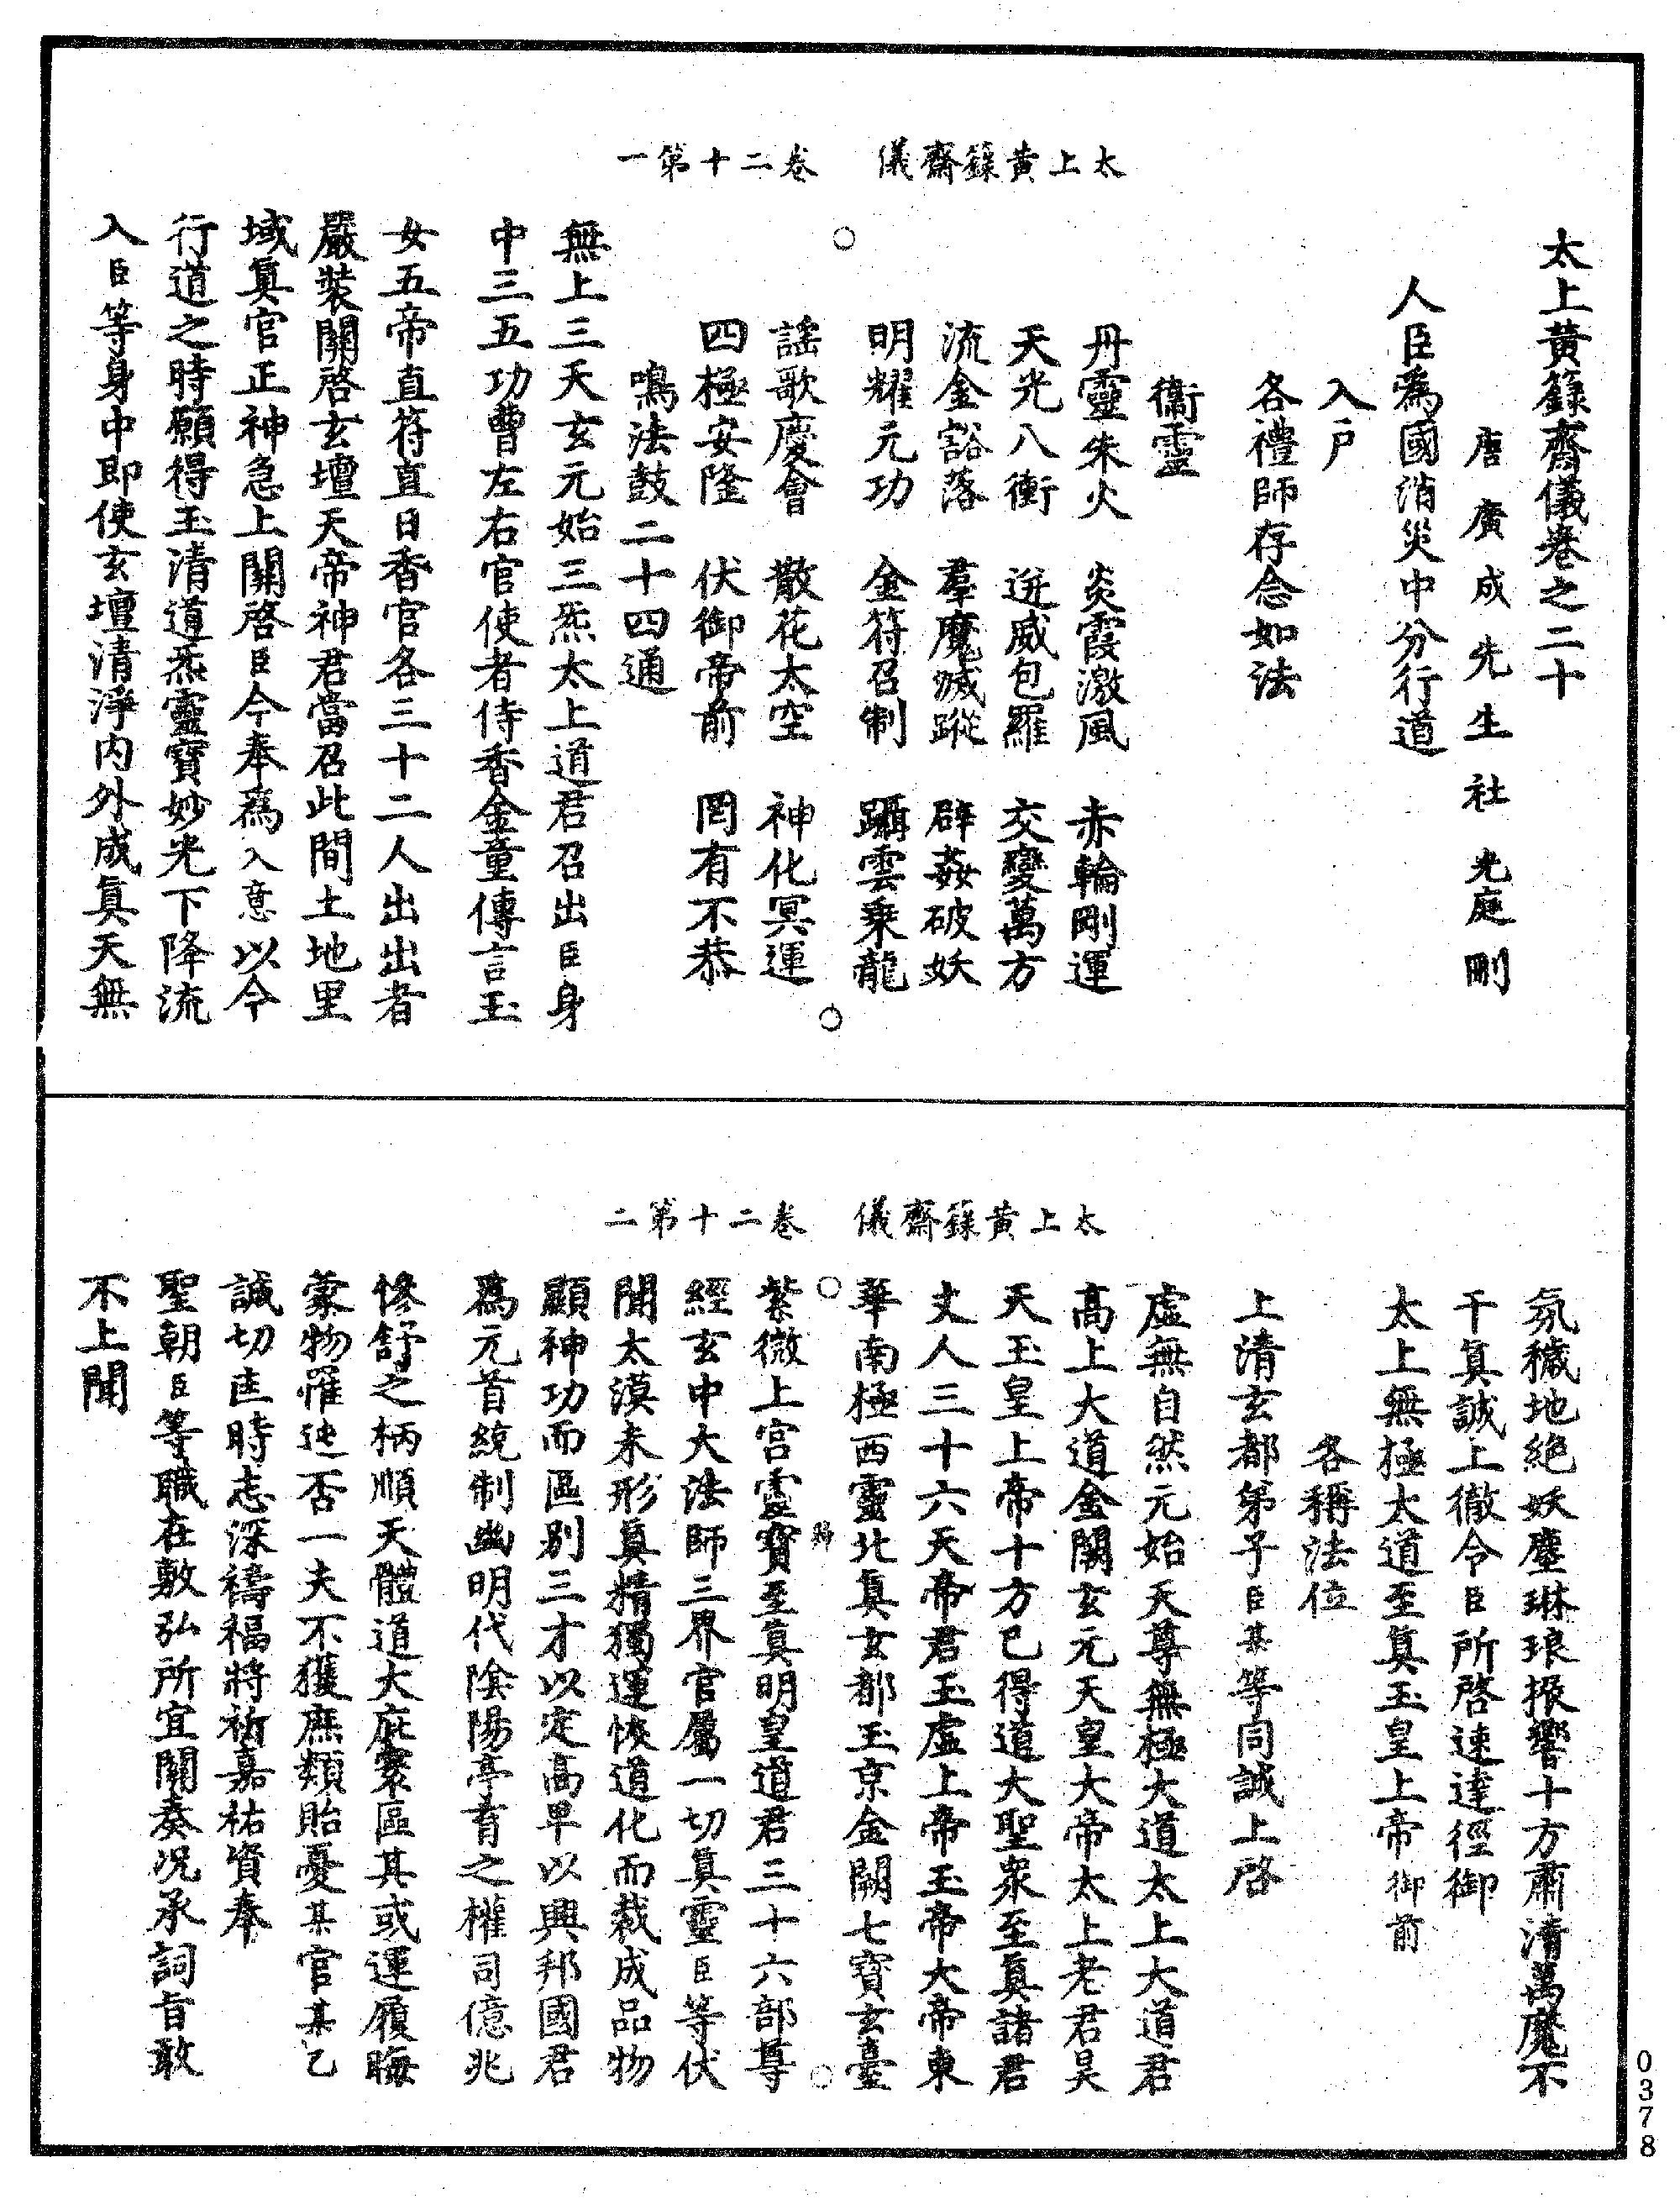 太上黃籙齋儀　卷二十第一
太上黃籙齋儀卷之二十
唐廣成先生社光庭刪
人臣爲國消災中分行道
入戶
各禮師存念如法
衞靈
丹靈朱火　炎霞激風　赤輪剛運
天光八衝　迸威包羅　交變萬方
流金豁落　羣魔滅蹤　辟姦破妖
明耀元功　金符召制　躡雲乗龍
謠歌慶會　散花太空　神化冥運
四極安隆　伏御帝前　罔有不恭
鳴法鼓二十四通
無上三天玄元始三炁太上道君召出臣身
中三五功曹左右官使者侍香金童傳言玉
女五帝直符直日香官各三十二人出出者
嚴裝關啓玄壇天帝神君當召此間土地里
域眞官正神急上關啓臣今奉爲入意以今
行道之時願得玉清道炁靈寶妙光下降流
入臣等身中即使玄壇清淨内外成眞天無
太上黃籙齋儀　卷二十第二
氛穢地絶妖塵琳琅振響十方肅清萬魔不
干眞誠上徹令臣所啓速達徑御
太上無極太道至眞玉皇上帝御前
各稱法位
上清玄都弟子臣某等同誠上啓
虛無自然元始天尊無極大道太上大道君
高上大道金闕玄元天皇大帝太上老君昊
天玉皇上帝十方已得道大聖衆至眞諸君
丈人三十六天帝君玉虛上帝玉帝大帝東
華南極西靈北眞玄都玉京金闕七寶玄臺
紫微上宮靈寶至眞明皇道君三十六部尊
經玄中大法師三界官屬一切眞靈臣等伏
聞太漠未形眞精獨運恢道化而裁成品物
顯神功而區别三才以定高卑以興邦國君
爲元首統制幽明代陰陽亭育之權司億兆
慘舒之柄順天體道大庇寰區其或運履晦
蒙物罹迍否一夫不獲庶類貽憂某官某乙
誠切匡時志深禱福將祈嘉祐資奉
聖朝臣等職在敷弘所宜關奏况承詞旨敢
不上聞
0378